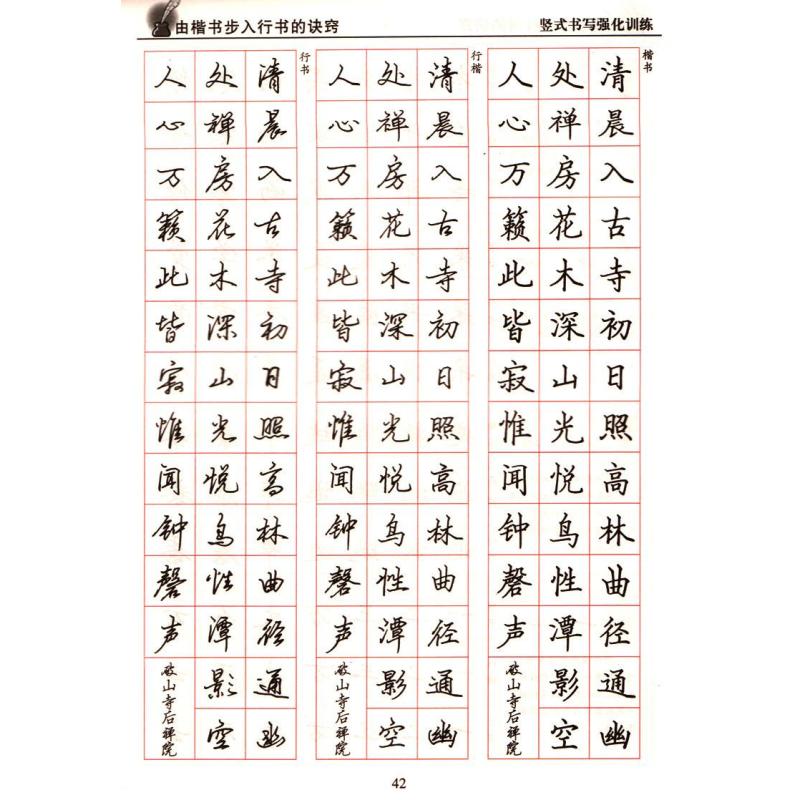 由楷书步入行书的诀窍
竖式书写强化训练
楷书
清晨入古寺初日照高林曲径通幽
处禅房花木深山光悦鸟性潭影空
人心万籁此皆寂惟闻钟磬声
破山寺后禅院
行楷
清晨入古寺初日照高林曲径通幽
处禅房花木深山光悦鸟性潭影空
人心万籁此皆寂惟闻钟磬声
破山寺后禅院
行书
清晨入古寺初日照高林曲径通幽
处禅房花木深山光悦鸟性潭影空
人心万籁此皆寂惟闻钟磬声
破山寺后禅院
42